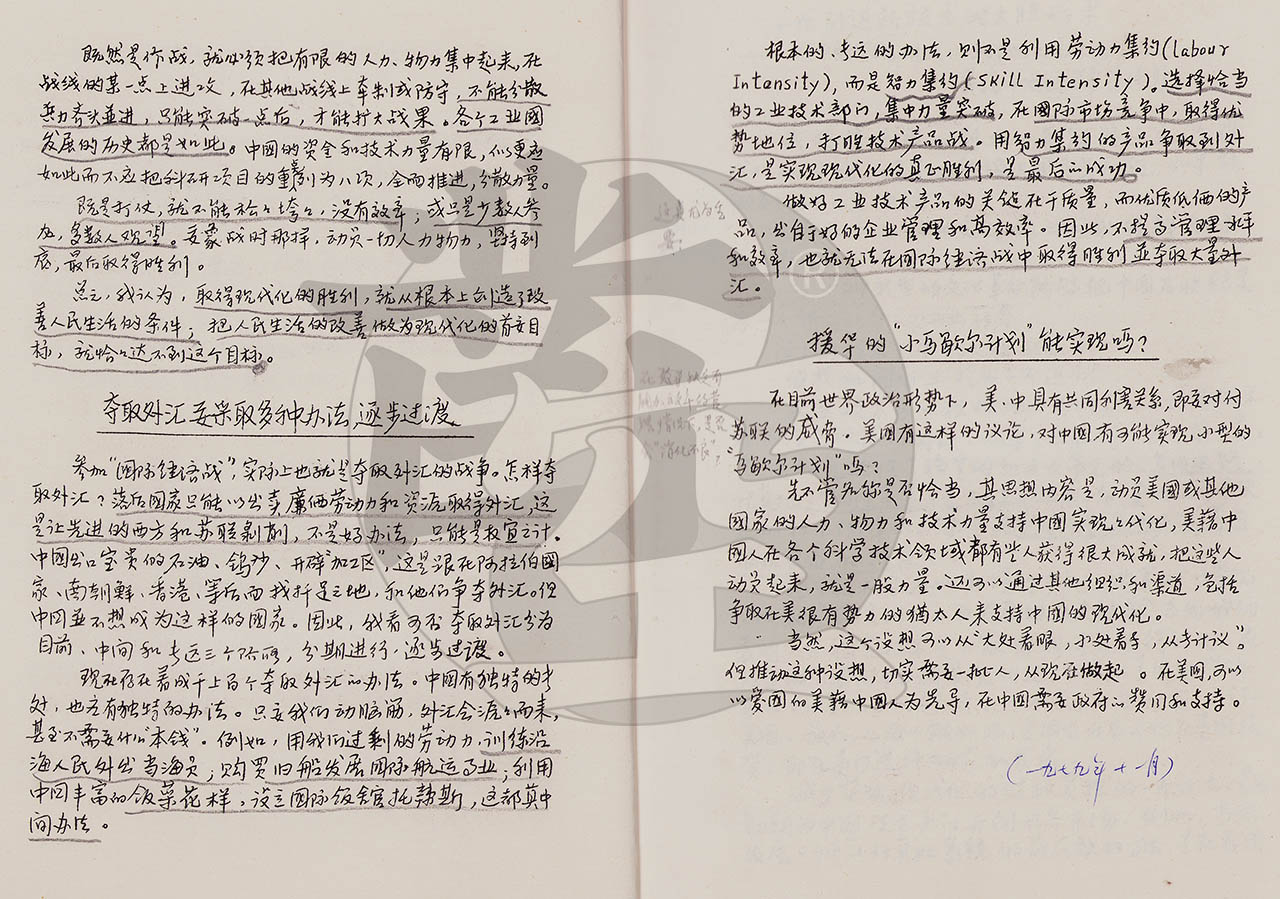 既然是作战，就必须把有限的人力、物力集中起来，在
战线的某一点上进攻，在其他战线上牵制或防守，不能分散
兵力齐头並进，只能突破一点后，才能扩大战果。各个工业國
发展的历史都是如此。中國的资金和技术力量有限，更应
如此而不应把科研项目的重点列为八次，全面推进，分散力量。
既是打仗，就不能松松垮垮，没有效率；或只是少数人参
加，多数人观望。要象战时那样，动员一切人力物力，坚持到
底，最后取得胜利。
总之，我认为，取得现代化的胜利，就从根本上创造了改
善人民生活的条件；把人民生活的改善做为现代化的首要目
标，就恰恰达不到这个目标。
夺取外汇要采取多种办法，逐步过渡
参加“国际经济战”，实际上也就是夺取外汇的战争。怎样夺
取外汇？落后国家只能以出卖廉価劳动力和资源取得外汇，这
是让先进的西方和苏联剥削，不是好办法，只能是权宜之计。
中國出口宝贵的石油、钨砂、开辟“加工区”，这是跟在阿拉伯國
家、南朝鮮、香港、等后面找插足之地，和他们争夺外汇。但
中国並不想成为这样的國家。因此，我看可否夺取外汇分为
目前、中间和长远三个阶段，分期进行，逐步过渡。
现在存在着成千上百个夺取外汇的办法。中國有独特的长
处，也应有独特的办法。只要我们动脑筋，外汇会源源而来，
甚至不需要什么“本钱”。例如，用我们过剩的劳动力，训练沿
海人民外出当海员；购买旧船发展国际航运事业；利用
中国丰富的饭菜花样，设立国际饭舘托辣斯，这都是其中
间办法。
根本的、长远的办法，则不是利用劳动力集约(labour
Intensity)，而是智力集约(Skill Intensity)。选择恰当
的工业技术部门，集中力量突破，在國际市场竞争中，取得优
势地位，打胜技术产品战。用智力集约的产品争取到外
汇，是实现现代化的真正胜利，是最后的成功。
做好工业技术产品的关键在于质量，而优质低価的产
品，出自于好的企业管理和高效率。因此，不提高管理水平
和效率，也就无法在国际经济战中取得胜利並夺取大量外
汇。
援华的“小马歇尔计划”能实现吗？
在目前世界政治形势下，美、中具有共同利害关系，即要对付
苏联的威胁。美國有这样的议论，对中國有可能实现小型的
“马歇尔计划”吗？
先不管名称是否恰当，其思想内容是，动员美國或其他
國家的人力、物力和技术力量支持中國实现现代化，美籍中
國人在各个科学技术领域都有些人获得很大成就，把这些人
动员起来，就是一股力量。还可以通过其他组织和渠道，包括
争取在美很有势力的猶太人来支持中國的现代化。
当然，这个设想可以从“大处着眼，小处着手，从长计议”。
但推动这种设想，切实需要一批人，从现在做起。在美國，可以
以爱國的美籍中國人为先导，在中國需要政府的赞同和支持。
(一九七九年十一月)